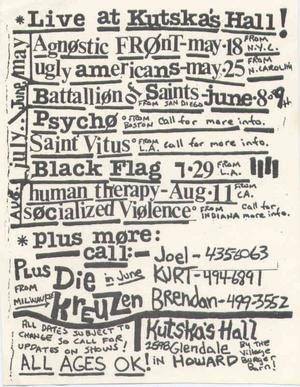 * Live at Kutska's Hall!
Agnøstic FRØnT-may-18 FROM N.Y.C.
ugly americans-may.25 FROM N.CAROLINA
Battalliøn of Saints-june-8&9th
FROM SAN DIEGO
Psychø ° FROM BOSTON Call for more info.
Saint Vitus ° FROM L.A. call for more info.
Black Flag 7·29 FROM L.A.
human therapy-Aug·11 FROM CA.
søcialized Viølence ° FROM INDIANA call for more info.
Aug. July. June/may
* plus møre:
call:
Joel-4356063
KURT-494-6891
Brendan-499-3552
Plus Die Kreuzen in June
FROM MILWAUKEE
ALL DATES SUBJECT TO
CHANGE SO CALL FOR
UPDATES ON SHOWS!
ALL AGES OK!
Kutska's Hall
2598 Glendale
in HOWARD
BY THE Village Burger Barn!